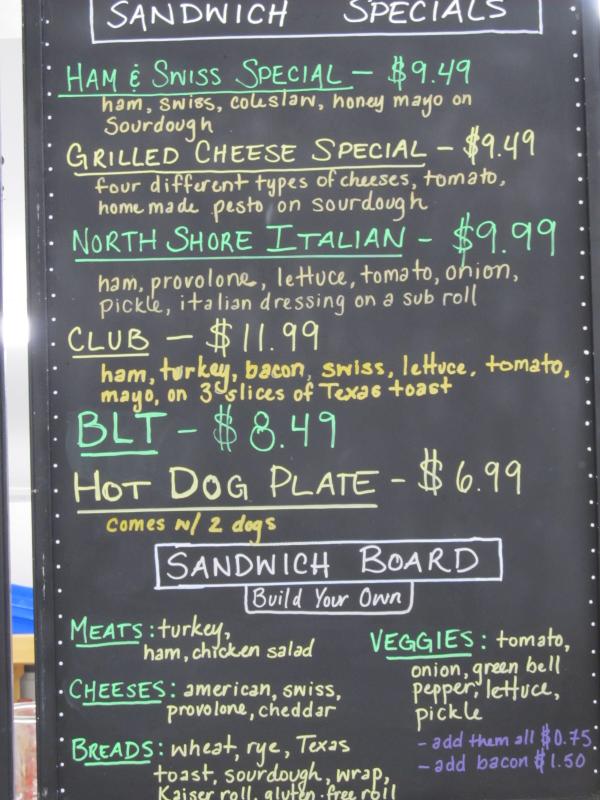 SANDWICH SPECIALS
HAM & SWISS SPECIAL - $9.49
ham, swiss, coleslaw, honey mayo on
Sourdough
GRILLED CHEESE SPECIAL - $9.49
four different types of cheeses, tomato,
home made pesto on sourdough
NORTH SHORE ITALIAN - $9.99
ham, provolone, lettuce, tomato, onion,
pickle, italian dressing on a sub roll
CLUB - $11.99
ham, turkey, bacon, swiss, lettuce, tomato,
mayo, on 3 slices of Texas toast
BLT - $8.49
HOT DOG PLATE - $6.99
comes w/ 2 dogs
SANDWICH BOARD
Build Your Own
MEATS: turkey,
ham, chicken salad
CHEESES: american, swiss,
provolone, cheddar
BREADS: wheat, rye, Texas
toast, sourdough, wrap,
Kaiser roll, gluten-free roll
VEGGIES: tomato,
onion, green bell
pepper, lettuce,
pickle
- add them all $0.75
- add bacon $1.50